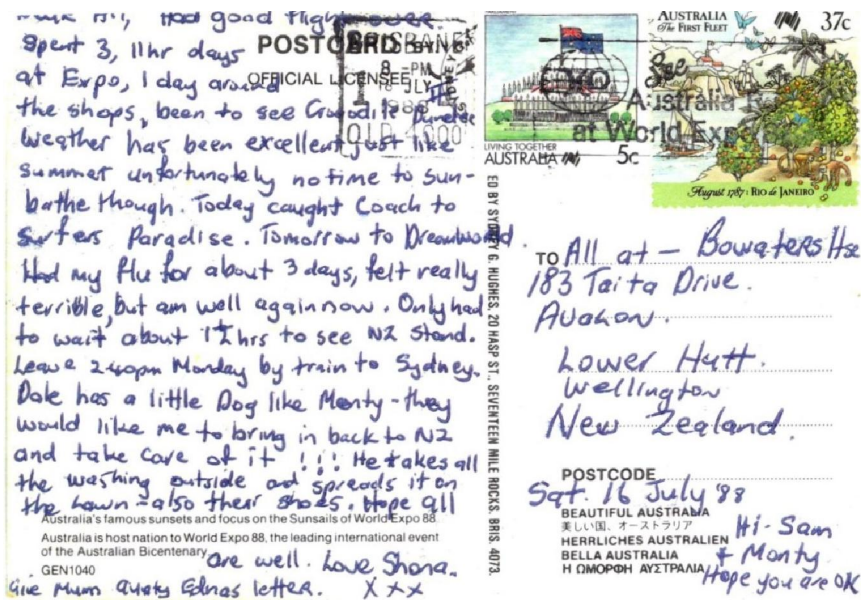 Had good flight over
Spent 3, 11hr days
at Expo, 1 day around
the shops, been to see Crocodile Dundee
Weather has been excellent just like
summer unfortunately no time to sun-
bathe though. Today caught Coach to
Surfers Paradise. Tomorrow to Dreamworld
Had my flu for about 3 days, felt really
terrible, but am well again now. Only had
to wait about 1½ hrs to see NZ Stand.
Leave 2.40pm Monday by train to Sydney.
Dale has a little Dog like Monty - they
would like me to bring in back to NZ
and take care of it !!! He takes all
the washing outside and spreads it on
the lawn - also their shoes. Hope all
are well. Love Shona.
X X X
Give Mum Aunty Ednas letter.
POSTCARD
OFFICIAL LICENSEE
Australia's famous sunsets and focus on the Sunsails of World Expo 88.
Australia is host nation to World Expo 88, the leading international event
of the Australian Bicentenary.
GEN1040
ED BY SYDNEY G. HUGHES, 20 HASP ST., SEVENTEEN MILE ROCKS, BRIS. 4073.
BRISBANE
8 -PM
18 JLY
1988
QLD 4000
LIVING TOGETHER
AUSTRALIA
5c
AUSTRALIA
The FIRST FLEET
37c
August 1787: RIO de JANEIRO
EXPO
See
Australia
at World Expo
TO All at - Bowaters Hse
183 Taita Drive.
Avalon.
Lower Hutt.
Wellington
New Zealand.
POSTCODE
Sat. 16 July '88
BEAUTIFUL AUSTRALIA
美しい国、オーストラリア
HERRLICHES AUSTRALIEN
BELLA AUSTRALIA
Η ΩΜΟΡΦΗ ΑΥΣΤΡΑΛΙΑ
Hi - Sam
+ Monty
Hope you are OK